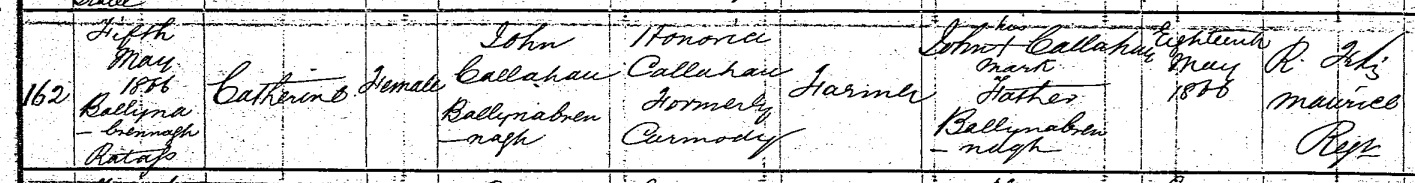 162
Fifth
May
1866
Ballyna
- brennagh
Ratass
Catherine
Female
John
Callahan
Ballynabren
- nagh
Honoria
Callahan
Formerly
Carmody
Farmer
his
John + Callahan
mark
Father
Ballynabren
- nagh
Eighteenth
May
1866
R. Fitz
maurice
Regr